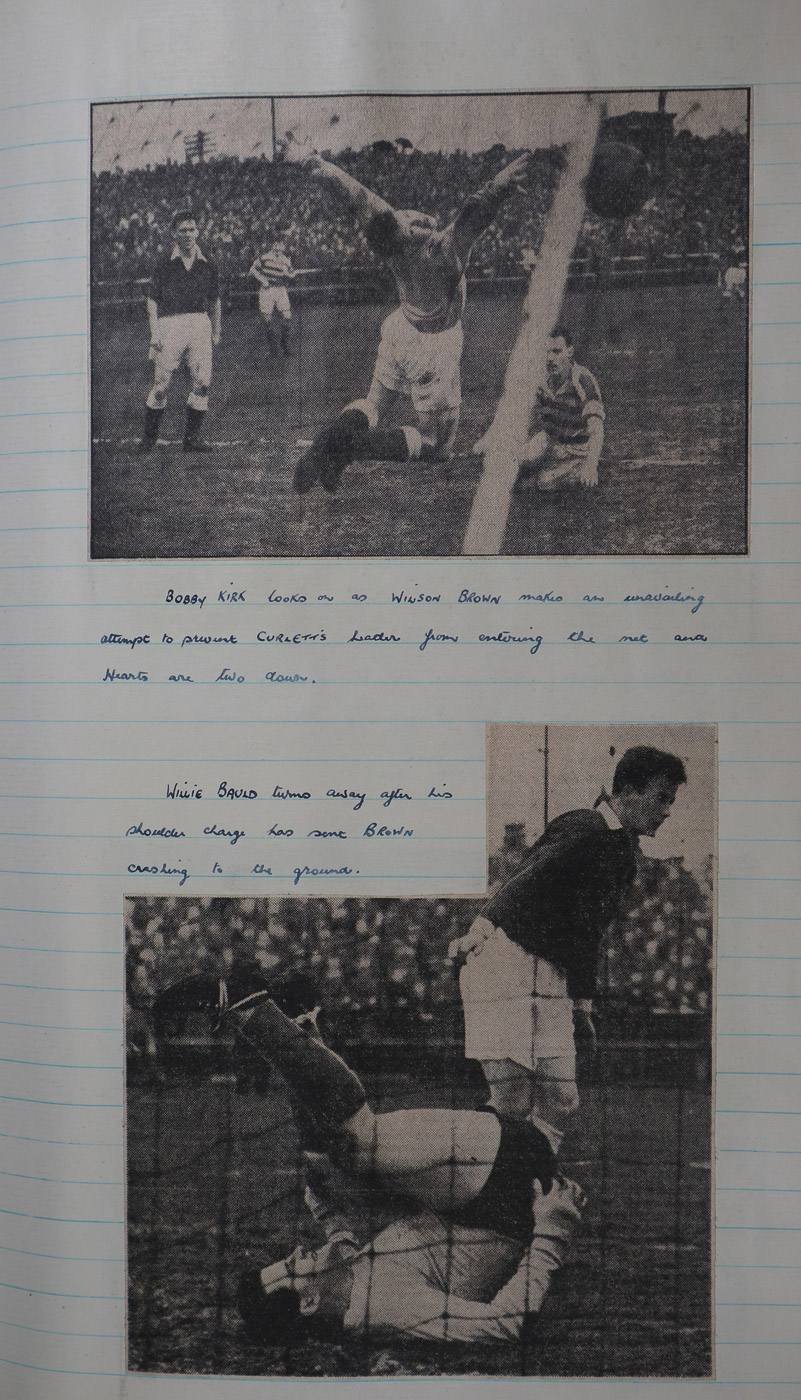 BOBBY KIRK looks on as WILSON BROWN makes an unavailing
attempt to prevent CURLETT'S header from entering the net and
Hearts are two down.
WILLIE BAULD turns away after his
shoulder charge has sent BROWN
crashing to the ground.